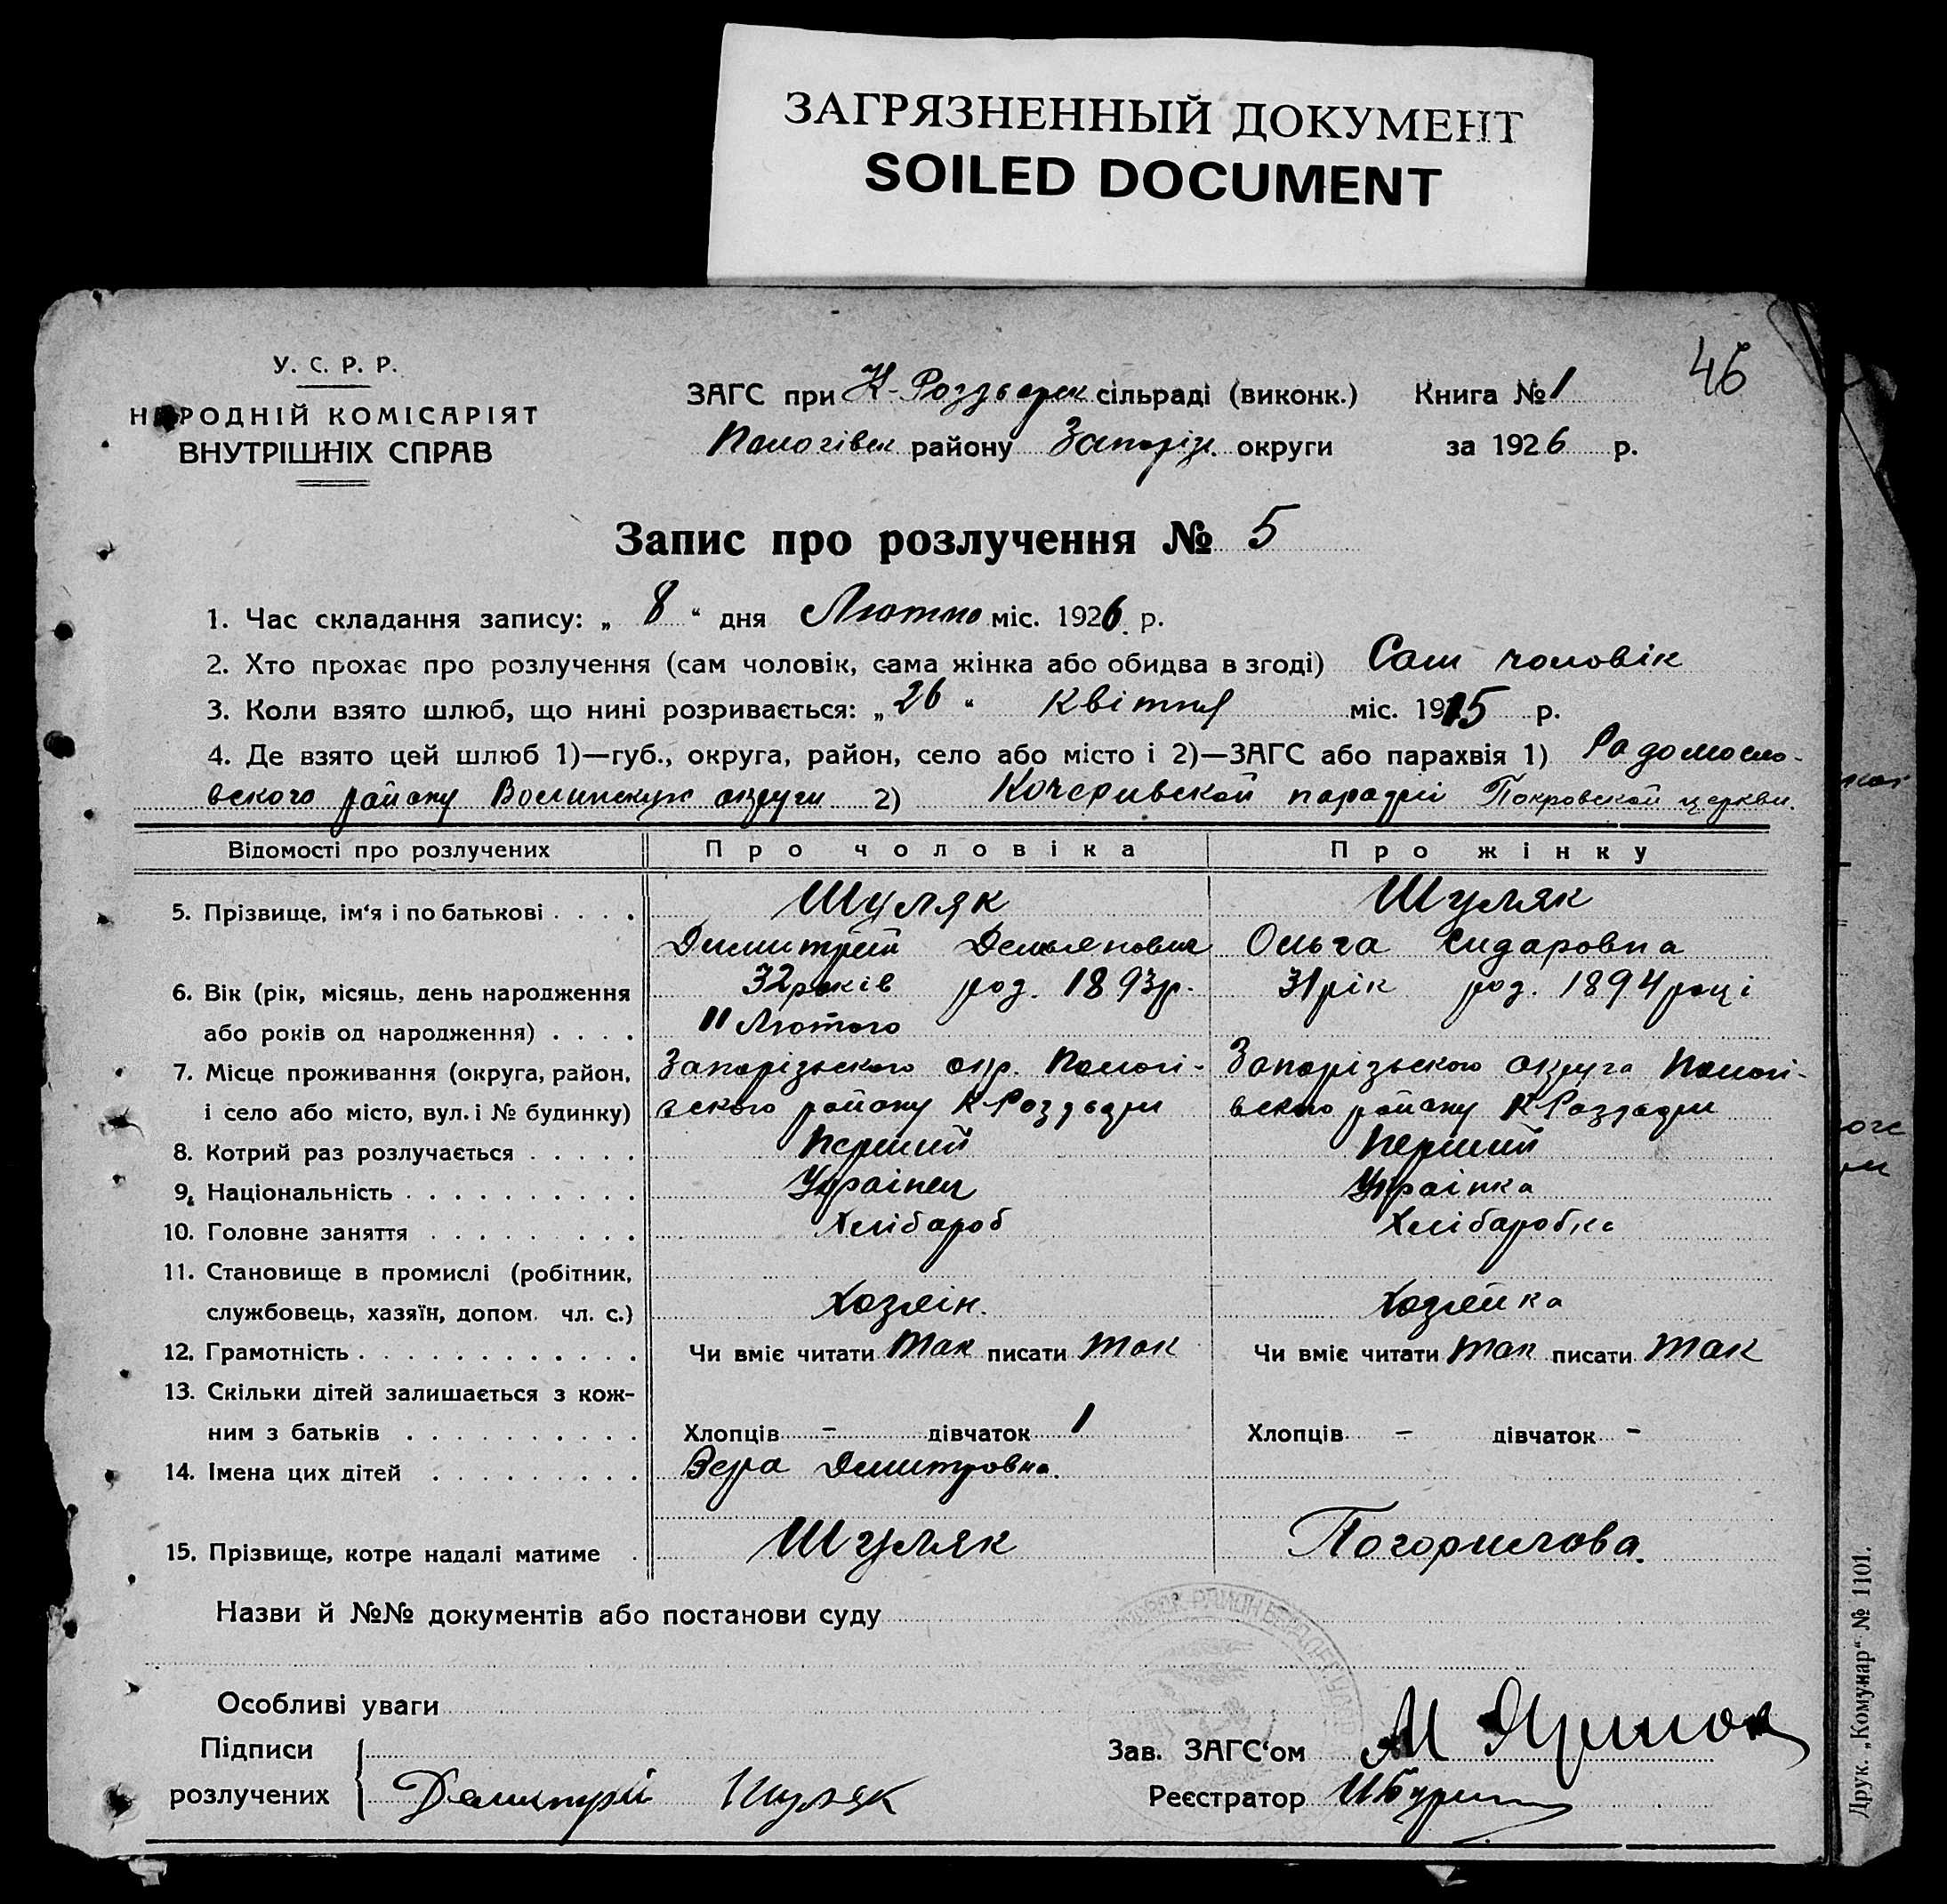 ЗАГРЯЗНЕННЫЙ ДОКУМЕНТ
SOILED DOCUMENT
46
У. С. Р. Р.
НАРОДНІЙ КОМІСАРІЯТ
ВНУТРІШНІХ СПРАВ
ЗАГС при К-Роздорск сільраді (виконк.) Книга № 1
Пологівск району Запоріж. округи за 1926 р.
Запис про розлучення № 5
1. Час складання запису: „ 8 “ дня Лютого міс. 1926 р.
2. Хто прохає про розлучення (сам чоловік, сама жінка або обидва в згоді) Сам чоловік
3. Коли взято шлюб, що нині розривається: „ 26 “ Квітня міс. 1915 р.
4. Де взято цей шлюб 1)—губ., округа, район, село або місто і 2)—ЗАГС або парахвія 1) Радомосло-
вского району Волинскух округи 2) Кочеривской парафії Покровской церкви.
Відомості про розлучених Про чоловіка Про жінку
5. Прізвище, ім‘я і по батькові . . . . Шуляк Шуляк
Димитрий Демьянович Ольга Сидаровна
6. Вік (рік, місяць, день народження 32 років род. 1893р. 31 рік род. 1894 році
або років од народження) . . . . 11 Лютого
7. Місце проживання (округа, район, Запорізького окр. Пологі- Запорізького округа Пологі-
і село або місто, вул. і № будинку) вского району К Роздори вского району К Роздори
8. Котрий раз розлучається . . . . . Перший Перший
9. Національність . . . . . . . . . . Українец Українка
10. Головне заняття . . . . . . . . . Хлібароб Хлібаробка
11. Становище в промислі (робітник,
службовець, хазяїн, допом. чл. с.) Хозяїн. Хозяйка
12. Грамотність . . . . . . . . . . . . Чи вміє читати Так писати Так Чи вміє читати Так писати Так
13. Скільки дітей залишається з кож-
ним з батьків . . . . . . . . . . Хлопців - дівчаток 1 Хлопців - дівчаток -
14. Імена цих дітей . . . . . . . . . Вера Димитровна.
15. Прізвище, котре надалі матиме . Шуляк Погорилова.
Назви й №№ документів або постанови суду
Особливі уваги
Підписи Зав. ЗАГС‘ом М
розлучених Димитрий Шуляк Реєстратор
Друк. „Комунар“ № 1101.